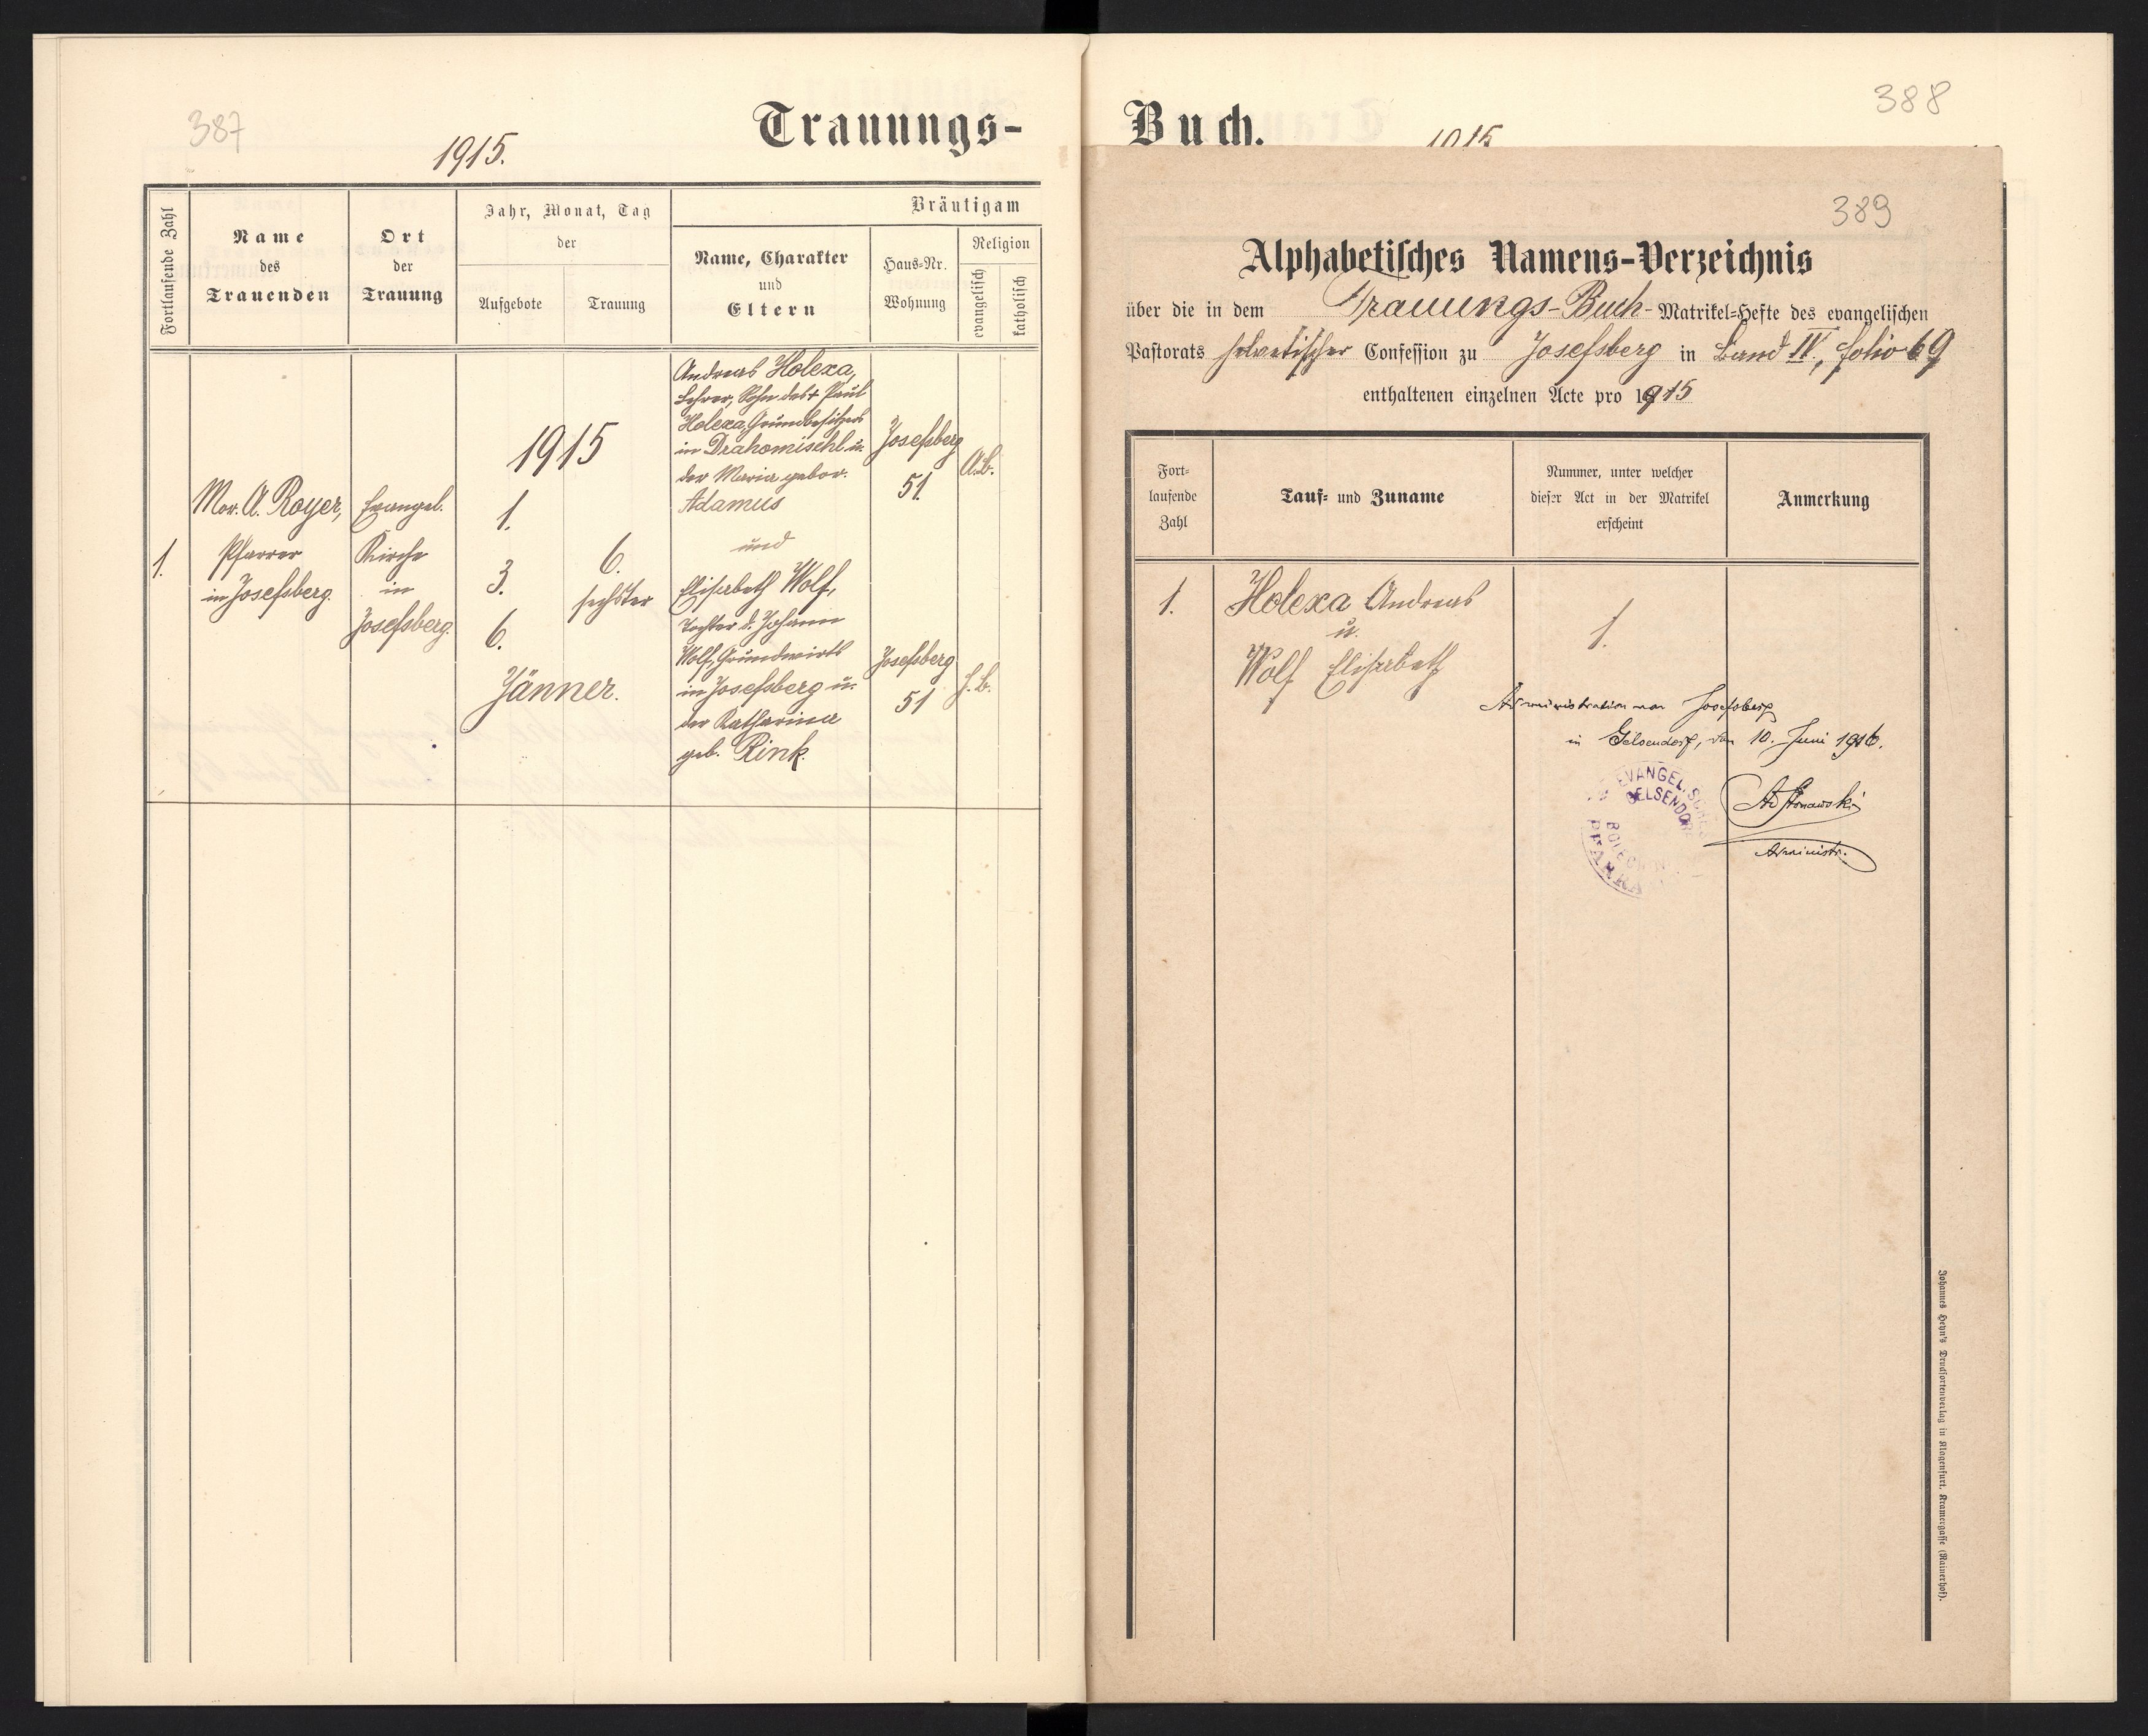 387
1915.
Trauungs-
Fortlaufende Zahl
Name
des
Trauenden
Ort
der
Trauung
Jahr, Monat, Tag
der
Aufgebote
Trauung
Bräutigam
Name, Charakter
und
Eltern
Haus-Nr.
Wohnung
Religion
evangelisch
katholisch
1.
Mor. A. Royer,
Pfarrer
in Josefsberg.
Evangel.
Kirche
in
Josefsberg.
1915
1.
3.
6.
Jänner.
6.
sechster
Andreas Holexa,
Lehrer, Sohn des † Paul
Holexa, Grundbesitzers
in Drahomischl u.
der Maria gebor.
Adamus
und
Elisabeth Wolf,
Tochter d. Johann
Wolf, Grundwirts
in Josefsberg u.
der Katharina
geb. Rink.
Josefsberg
51.
Josefsberg
51
A.B.
H.B.
388
Buch.
1915
389
Alphabetisches Namens-Verzeichnis
über die in dem Trauungs-Buch-Matrikel-Hefte des evangelischen
Pastorats helvetischer Confession zu Josefsberg in Band IV., folio 69
enthaltenen einzelnen Acte pro 1915
Fort-
laufende
Zahl
Tauf- und Zuname
Nummer, unter welcher
dieser Act in der Matrikel
erscheint
Anmerkung
1.
Holexa Andreas
u.
Wolf Elisabeth
1.
Administration von Josefsberg
in Gelsendorf, den 10. Juni 1916.
EVANGEL.
GELSENDORF
PFARRA
Administr.
Johannes Heyn's Drucksortenverlag in Klagenfurt, Kramergasse (Rainerhof).